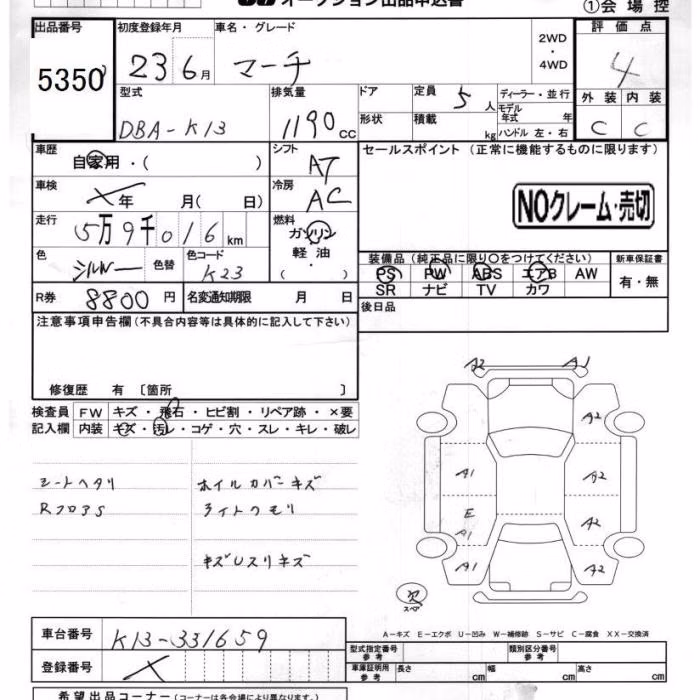 オークション出品申込書
①会場控
出品番号
5350
初度登録年月
23 6月
車名・グレード
マーチ
2WD
・
4WD
評価点
4
型式
DBA-K13
排気量
1190 cc
ドア
定員
5人
ディーラー・並行
形状
積載
kg
モデル年式 年
ハンドル 左・右
外装 内装
C C
車歴
自家用・( )
シフト
AT
セールスポイント (正常に機能するものに限ります)
車検
年 月( 日)
冷房
AC
NOクレーム・売切
走行
5万9千016 km
燃料
ガソリン
軽油
( ・ )
色
シルバー
色替
色コード
K23
装備品 (純正品に限り○をつけてください)
新車保証書
PS PW ABS エアB AW
SR ナビ TV カワ
有・無
R券
8800円
名変通知期限 月 日
後日品
注意事項申告欄 (不具合内容等は具体的に記入して下さい)
修復歴 有 〔箇所 〕
検査員 FW キズ・飛石・ヒビ割・リペア跡・×要
記入欄 内装 キズ・汚レ・コゲ・穴・スレ・キレ・破レ
シートヘタリ
ホイルカバーキズ
ライトクモリ
A2 A1
A2
A1 A2
E
A1
A2
A1 A2
スペア
A-キズ E-エクボ U-凹み W-補修跡 S-サビ C-腐食 XX-交換済
車台番号
K13-331659
登録番号
型式指定番号
参考
類別区分番号
参考
車庫証明用
参考
長さ cm 幅 cm 高さ cm
希望出品コーナー (コーナーは各会場により異なります。)